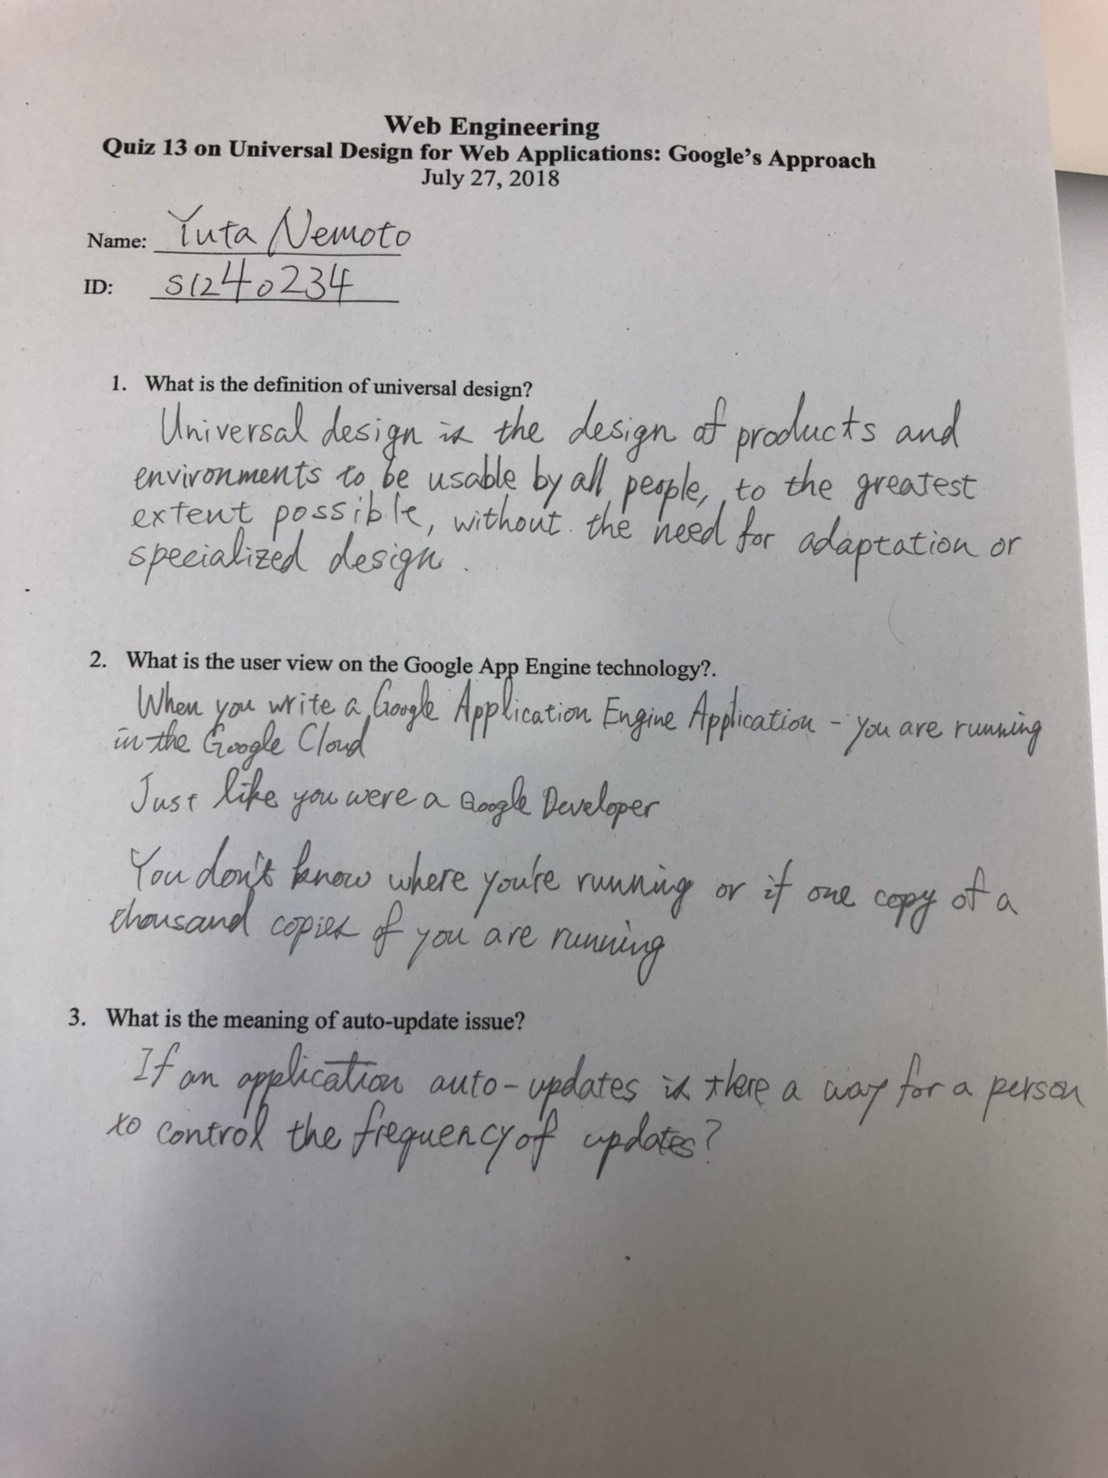 Web Engineering
Quiz 13 on Universal Design for Web Applications: Google's Approach
July 27, 2018
Name: Yuta Nemoto
ID: s1240234
1. What is the definition of universal design?
Universal design is the design of products and
environments to be usable by all people, to the greatest
extent possible, without the need for adaptation or
specialized design.
2. What is the user view on the Google App Engine technology?.
When you write a Google Application Engine Application - you are running
in the Google Cloud
Just like you were a Google Developer
You don't know where you're running or if one copy of a
thousand copies of you are running
3. What is the meaning of auto-update issue?
If an application auto-updates is there a way for a person
to control the frequency of updates?